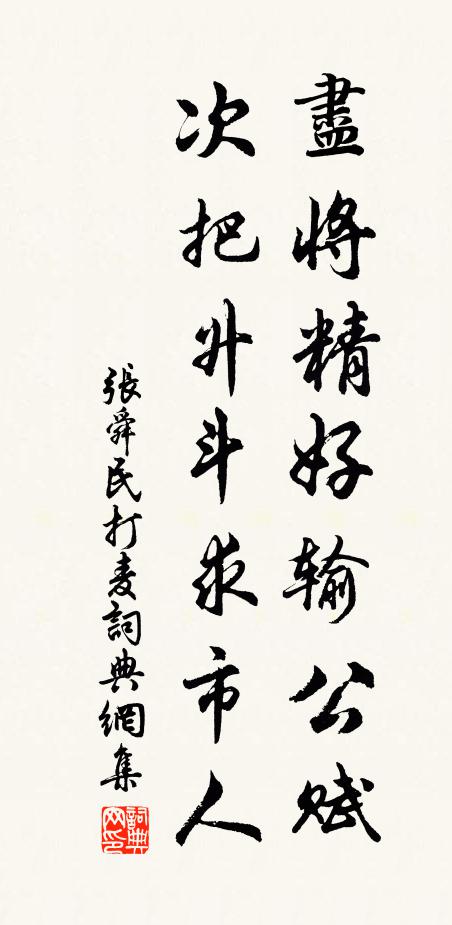 盡將精好输公赋
次把升斗求市人
張舜民打麦詞典網集
詞典
网印